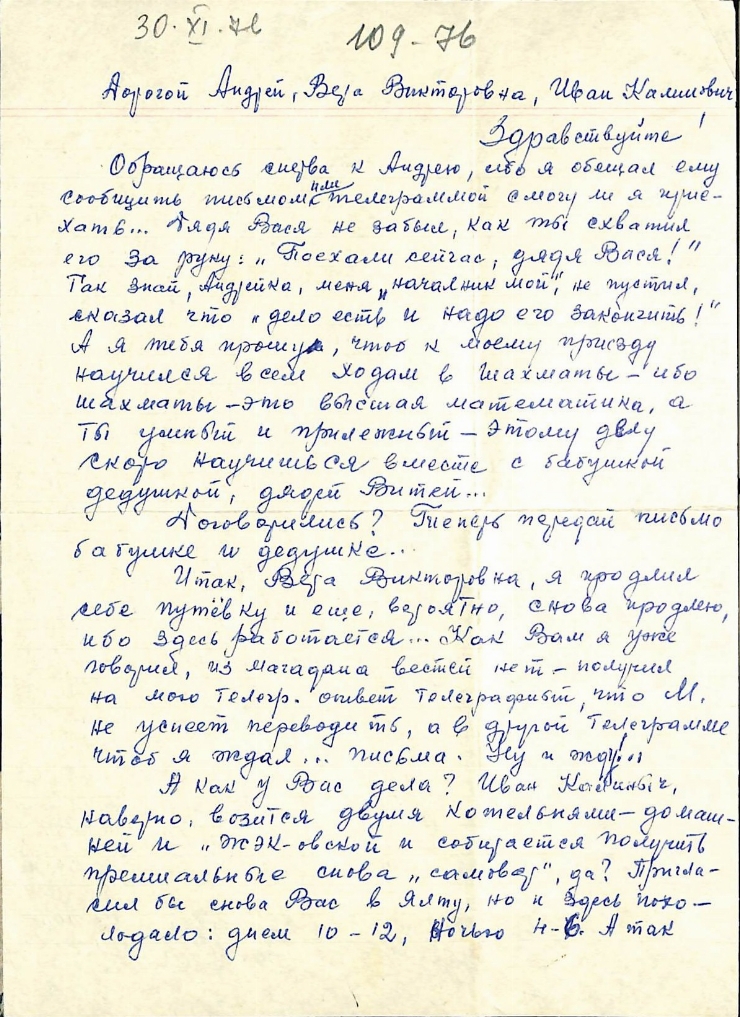 30.XI.76
109-76
Дорогой Андрей, Вера Викторовна, Иван Калинович,
Здравствуйте!
Обращаюсь сперва к Андрею, ибо я обещал ему
сообщить письмом или телеграммой смогу ли я прие-
хать... Дядя Вася не забыл, как ты схватил
его за руку: „Поехали сейчас, дядя Вася!"
Так знай, Андрейка, меня „началник мой", не пустил,
сказал что „дело есть и надо его закончить!"
А я тебя прошу, чтоб к моему приезду
научился всем ходам в шахматы – ибо
шахматы – это высшая математика, а
ты умный и прилежный – этому делу
скоро научишься вместе с бабушкой
дедушкой, дядей Витей...
Договорились? Теперь передай письмо
бабушке и дедушке...
Итак, Вера Викторовна, я продлил
себе путёвку и еще, вероятно, снова продлю,
ибо здесь работается... Как Вам я уже
говорил, из Магадана вестей нет – получил
на мою телегр. ответ телеграфный, что М.
не успеет переводить, а в другой телеграмме
чтоб я ждал... письма. Ну и жду!..
А как у Вас дела? Иван Калиныч,
наверно, возится двумя котельнями – домаш-
ней и „ЖЭК-овской и собирается получить
премиальные снова „самовар", да? Пригла-
сил бы снова Вас в Ялту, но и здесь похо-
лодало: днем 10-12, ночью 4-6. А так